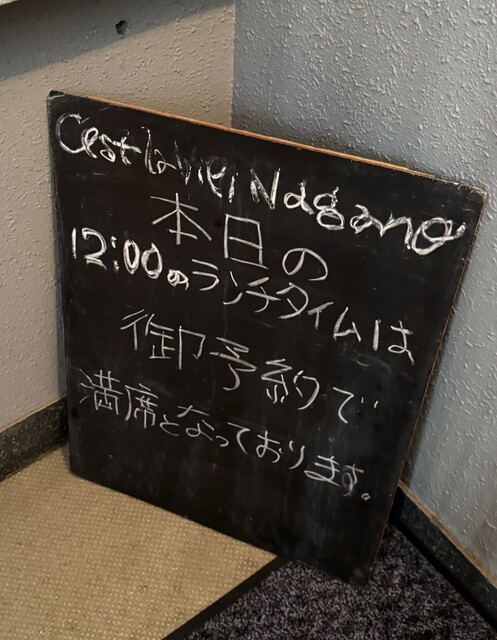 C'est la vie! Nagano
本日の
12:00のランチタイムは
御予約で
満席となっております。